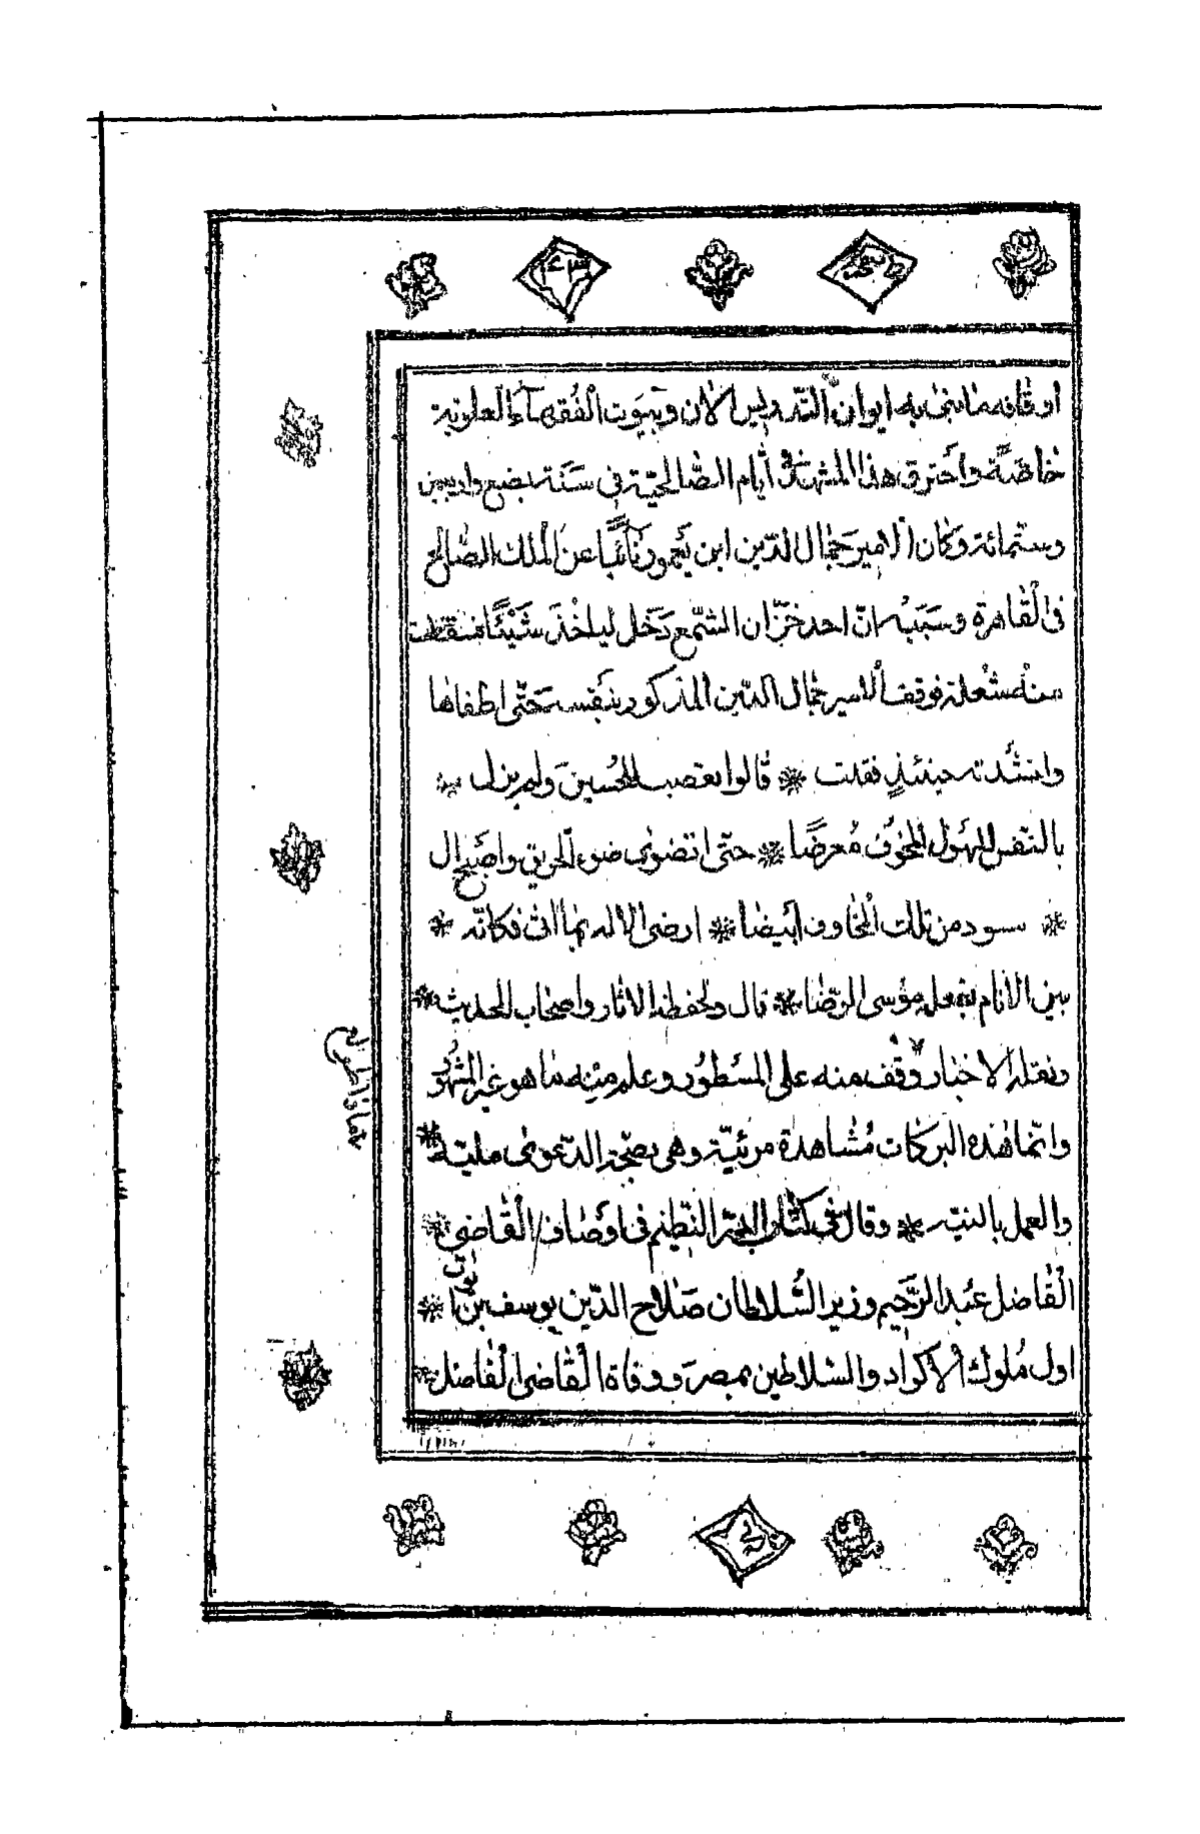 صفحة
١٤٣
اوقافه ما بنى به ايوان التدريس الان وبيوت الفقهاء العلوية
خاصة واحترق هذا المشهد فى أيام الصالحية فى سنة بضع واربعين
وستمائة وكان الامير جمال الدين ابن يغمور نائبًا عن الملك الصالح
فى القاهرة وسببه انّ احد خزّان الشمع دخل ليأخذ شيئًا فسقطت
منه شعلة فوقف الامير جمال الدين المذكور بنفسه حتّى اطفاها
وانشدته حينئذٍ فقلت * قالوا تعصب للحسين ولم يزل *
بالنفس للهول المخوف معرضًا * حتى انضوى ضوء الحريق واصبح ال
* مسود من تلك المخاوف ابيضا * ارضى الاله بما اتى فكانّه *
بين الانام بفعله موسى الرّضا * قال ولحفظة الاثار واصحاب الحديث *
ونقلة الاخبار وقف منه على المسطور وعلم منه ما هو غير المشهور
وانّما هذه البركات مُشاهدة مرئيّة وهى بصحّة الدّعوى مليّة *
والعمل بالنيّه * وقال فى كتاب الدرّ النظيم فى اوصاف القاضى *
الفاضل عبد الرّحيم وزير السّلطان صلاح الدّين يوسف بن ايوب *
اول مُلوك الاكراد والسلاطين بمصر ووفاة القاضى الفاضل *